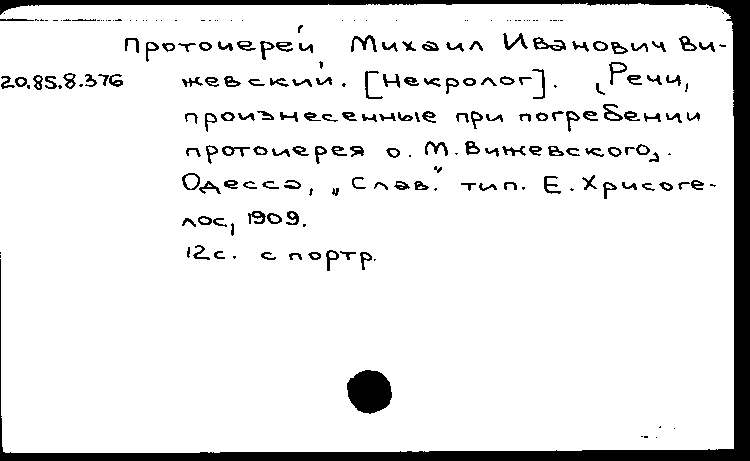 Протоиерей Михаил Иванович Ви-
20.85.8.376 жевский. [Некролог]. (Речи,
произнесенные при погребении
протоиерея о. М. Вижевского).
Одесса, „Слав." тип. Е. Хрисоге-
лос, 1909.
12 с. с портр.